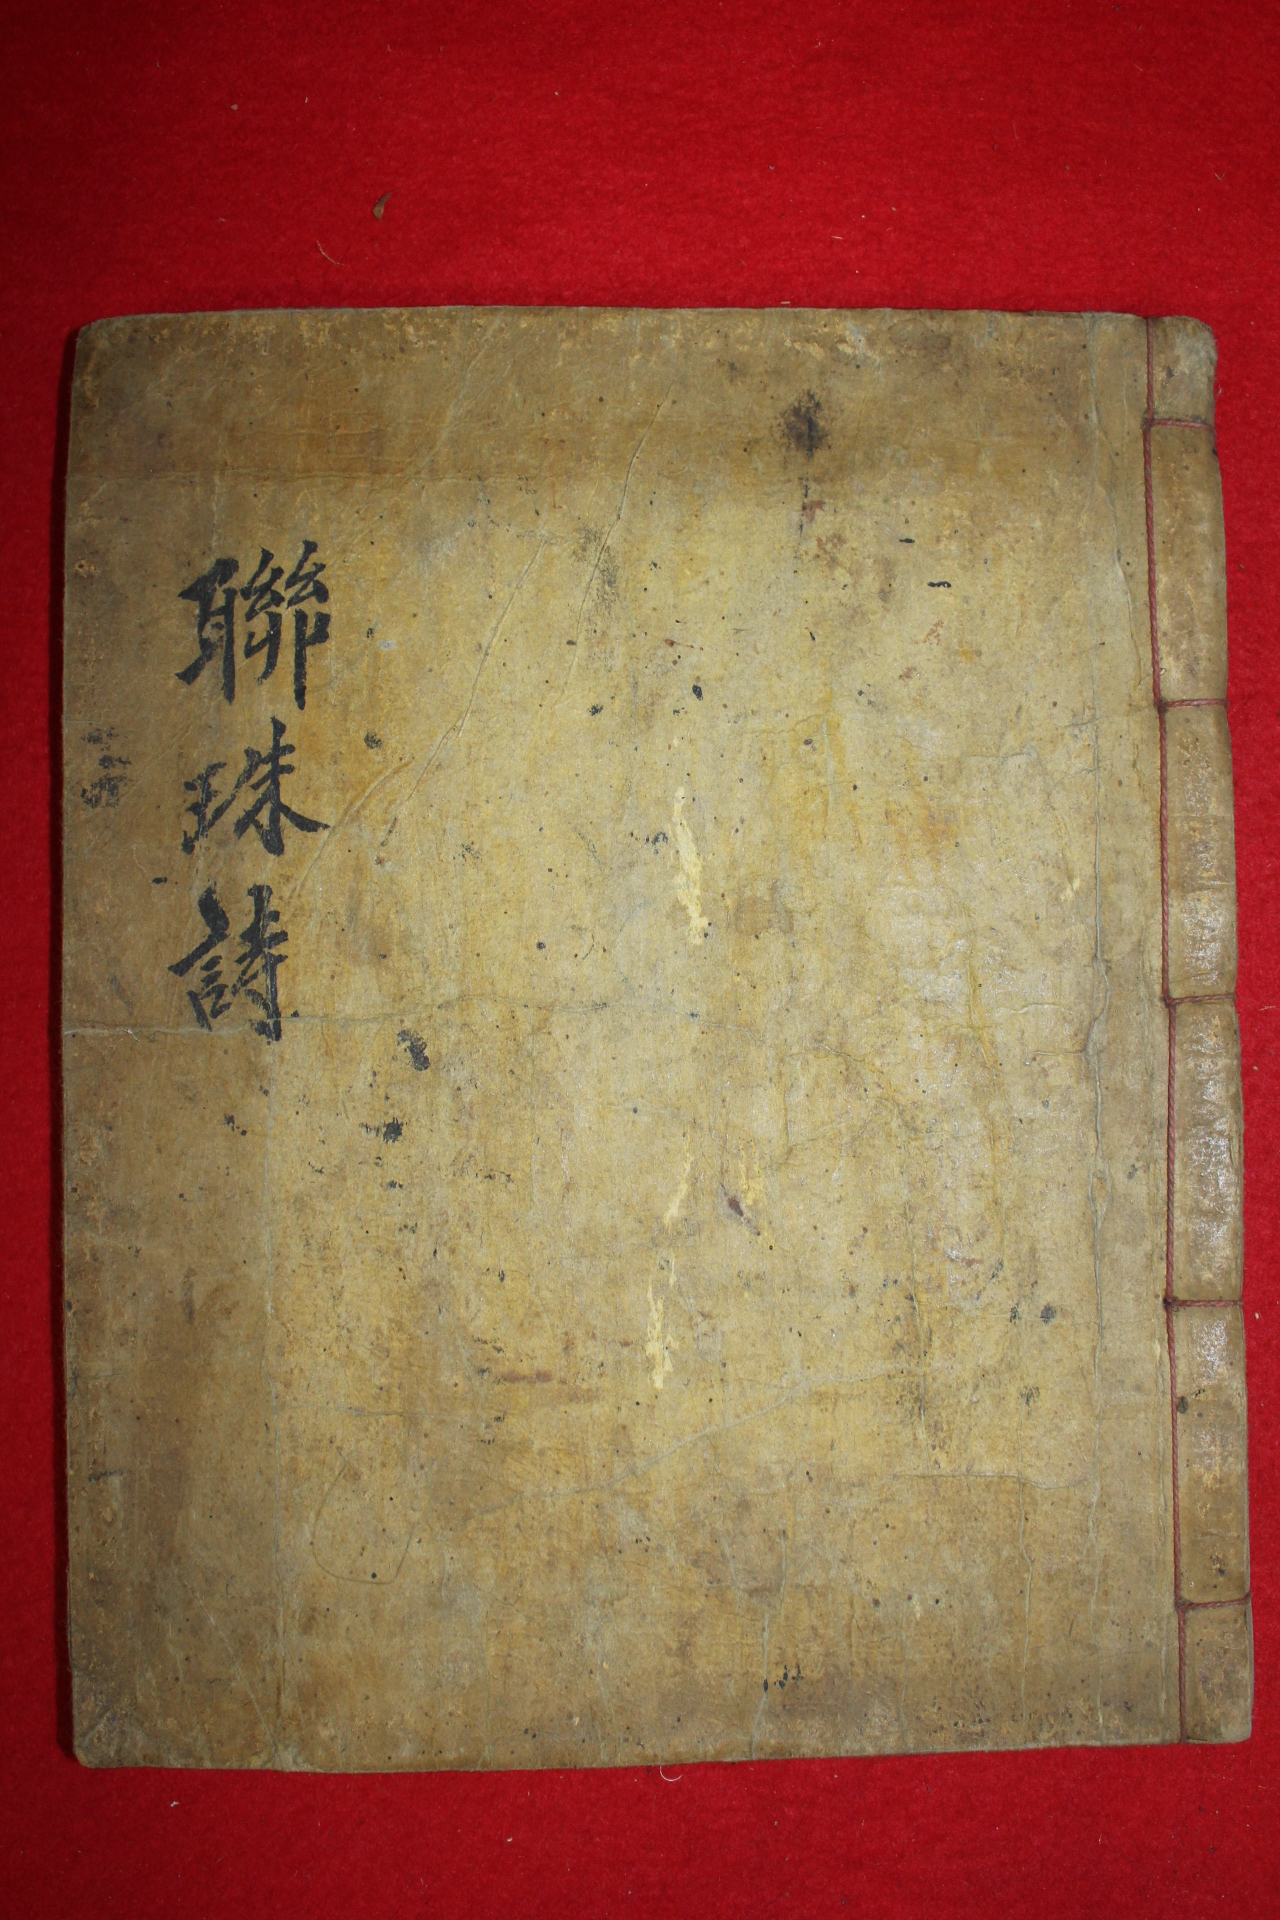 聯珠詩